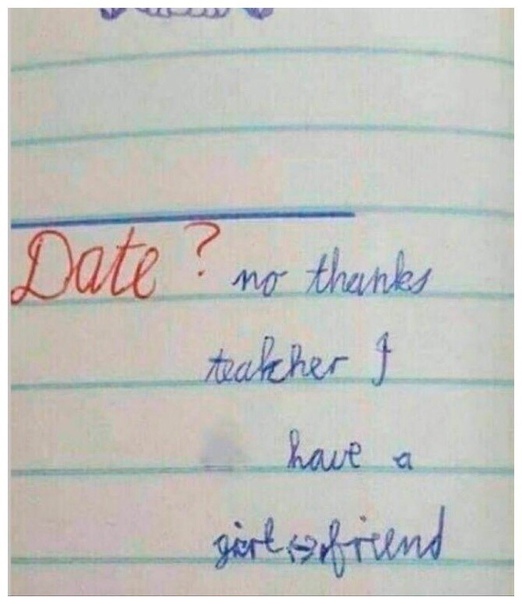 Date ? no thanks
teakher I
have a
girl friend